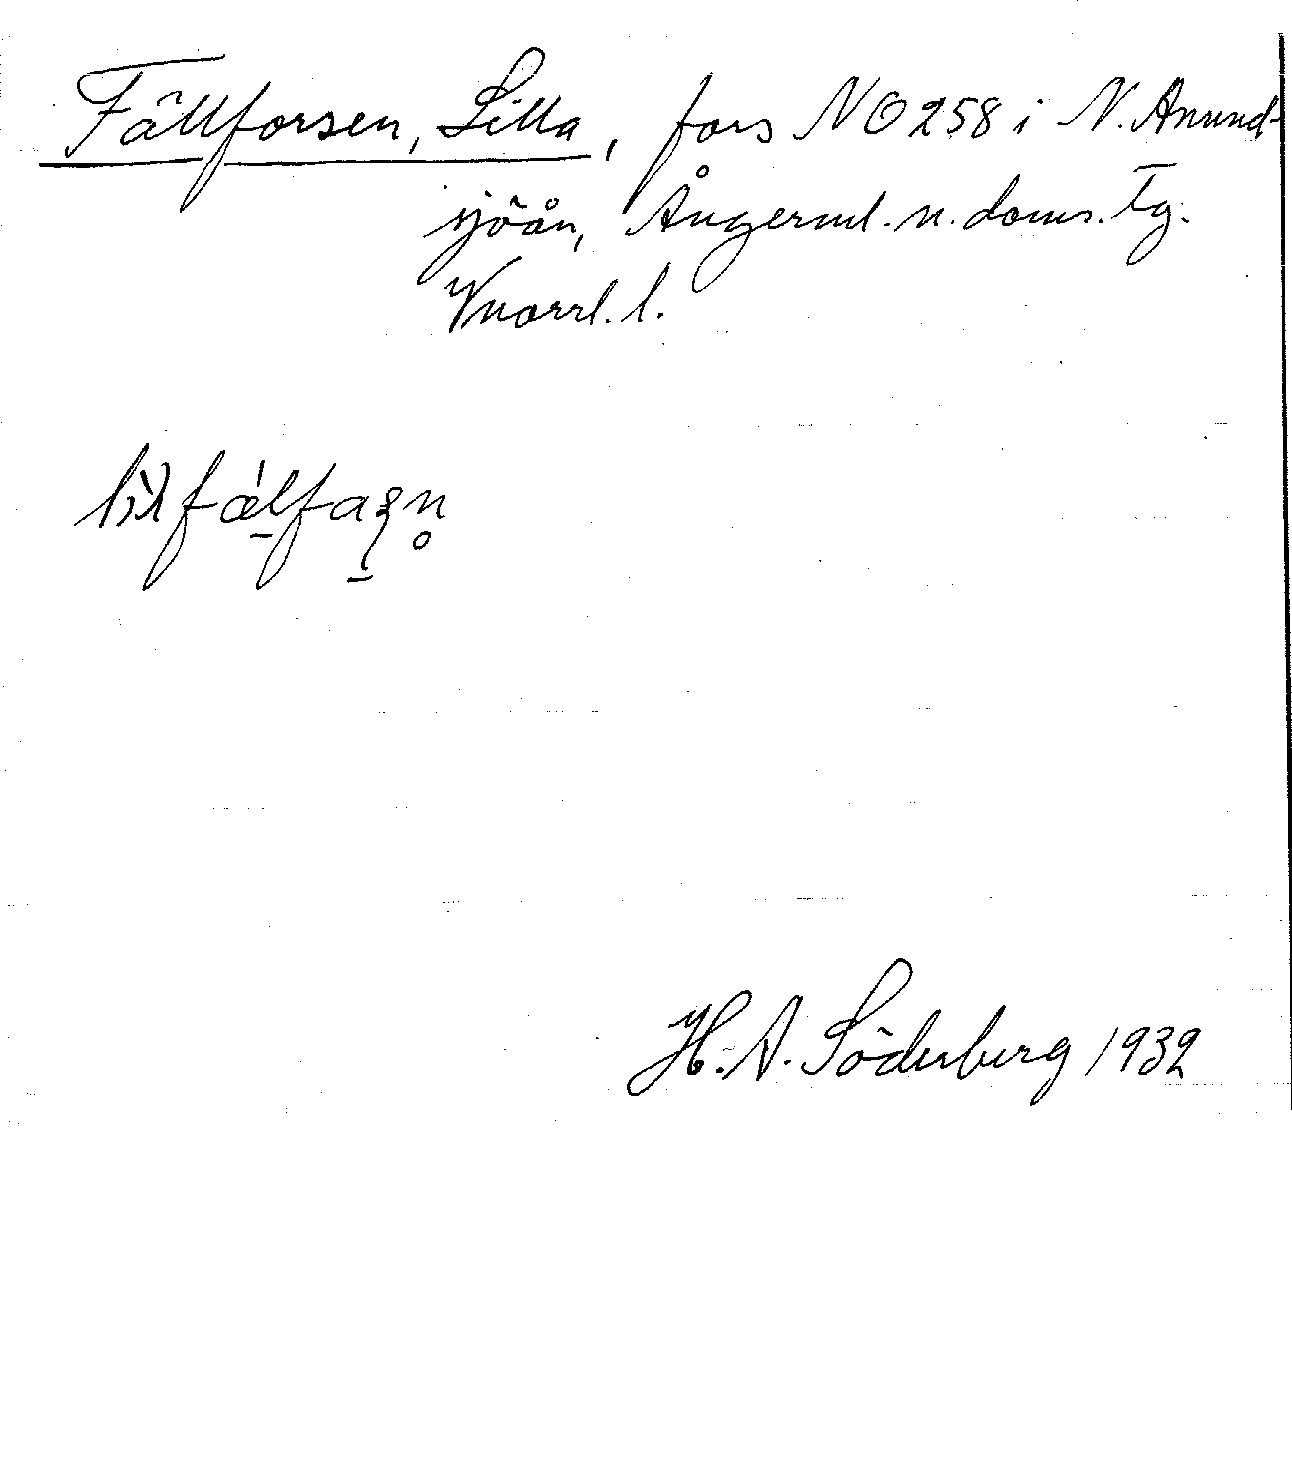 Fällforsen, Lilla, fors NO 258 i N. Anund-
sjöån, Ångerml. n. doms. Tg.
Vnorrl. l.
H. A. Söderberg 1932